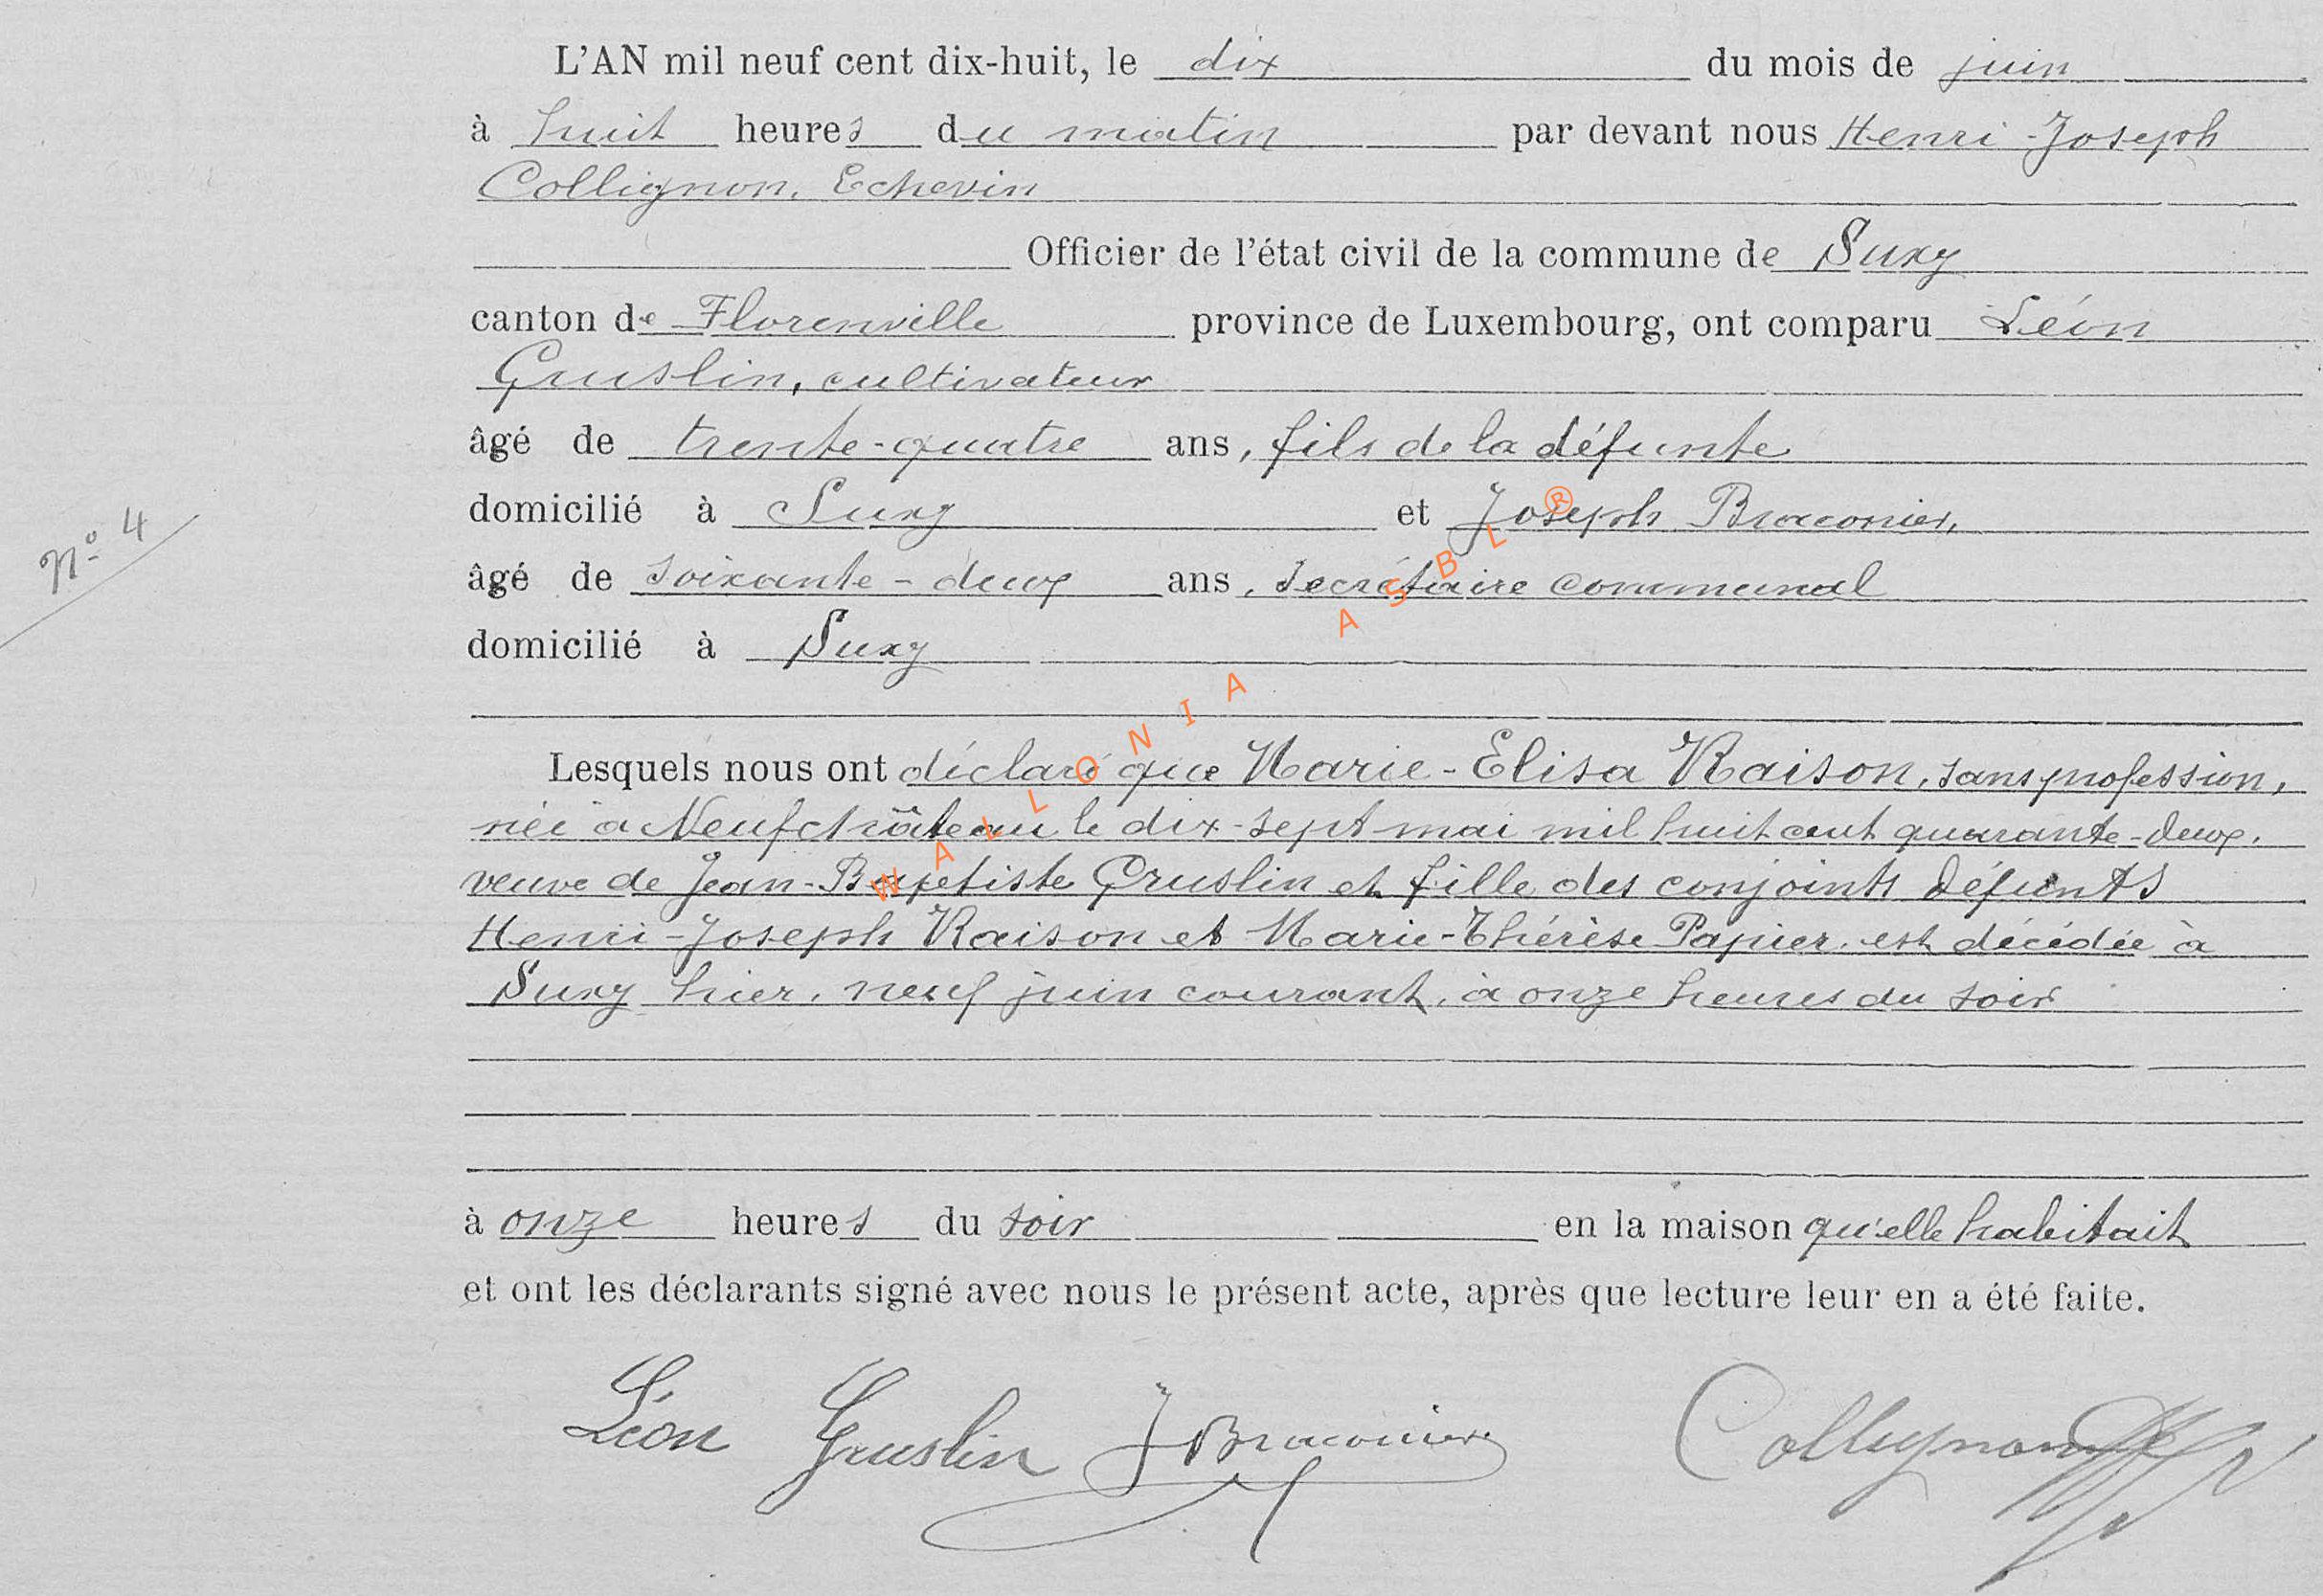 L'AN mil neuf cent dix-huit, le dix du mois de juin
à huit heures du matin par devant nous Henri-Joseph
Collignon, Echevin
Officier de l'état civil de la commune de Suxy
canton de Florenville province de Luxembourg, ont comparu Léon
Gruslin, cultivateur
âgé de trente-quatre ans, fils de la défunte
domicilié à Suxy et Joseph Braconier,
N° 4
âgé de soixante-deux ans, secrétaire communal
domicilié à Suxy
Lesquels nous ont déclaré que Marie-Elisa Raison, sans profession,
née à Neufchâteau le dix-sept mai mil huit cent quarante-deux,
veuve de Jean-Baptiste Gruslin et fille des conjoints défunts
Henri-Joseph Raison et Marie-Thérèse Papier, est décédée à
Suxy hier, neuf juin courant, à onze heures du soir
à onze heures du soir en la maison qu'elle habitait
et ont les déclarants signé avec nous le présent acte, après que lecture leur en a été faite.
Léon Gruslin JBraconier Collignon
WALLONIA ASBL ®